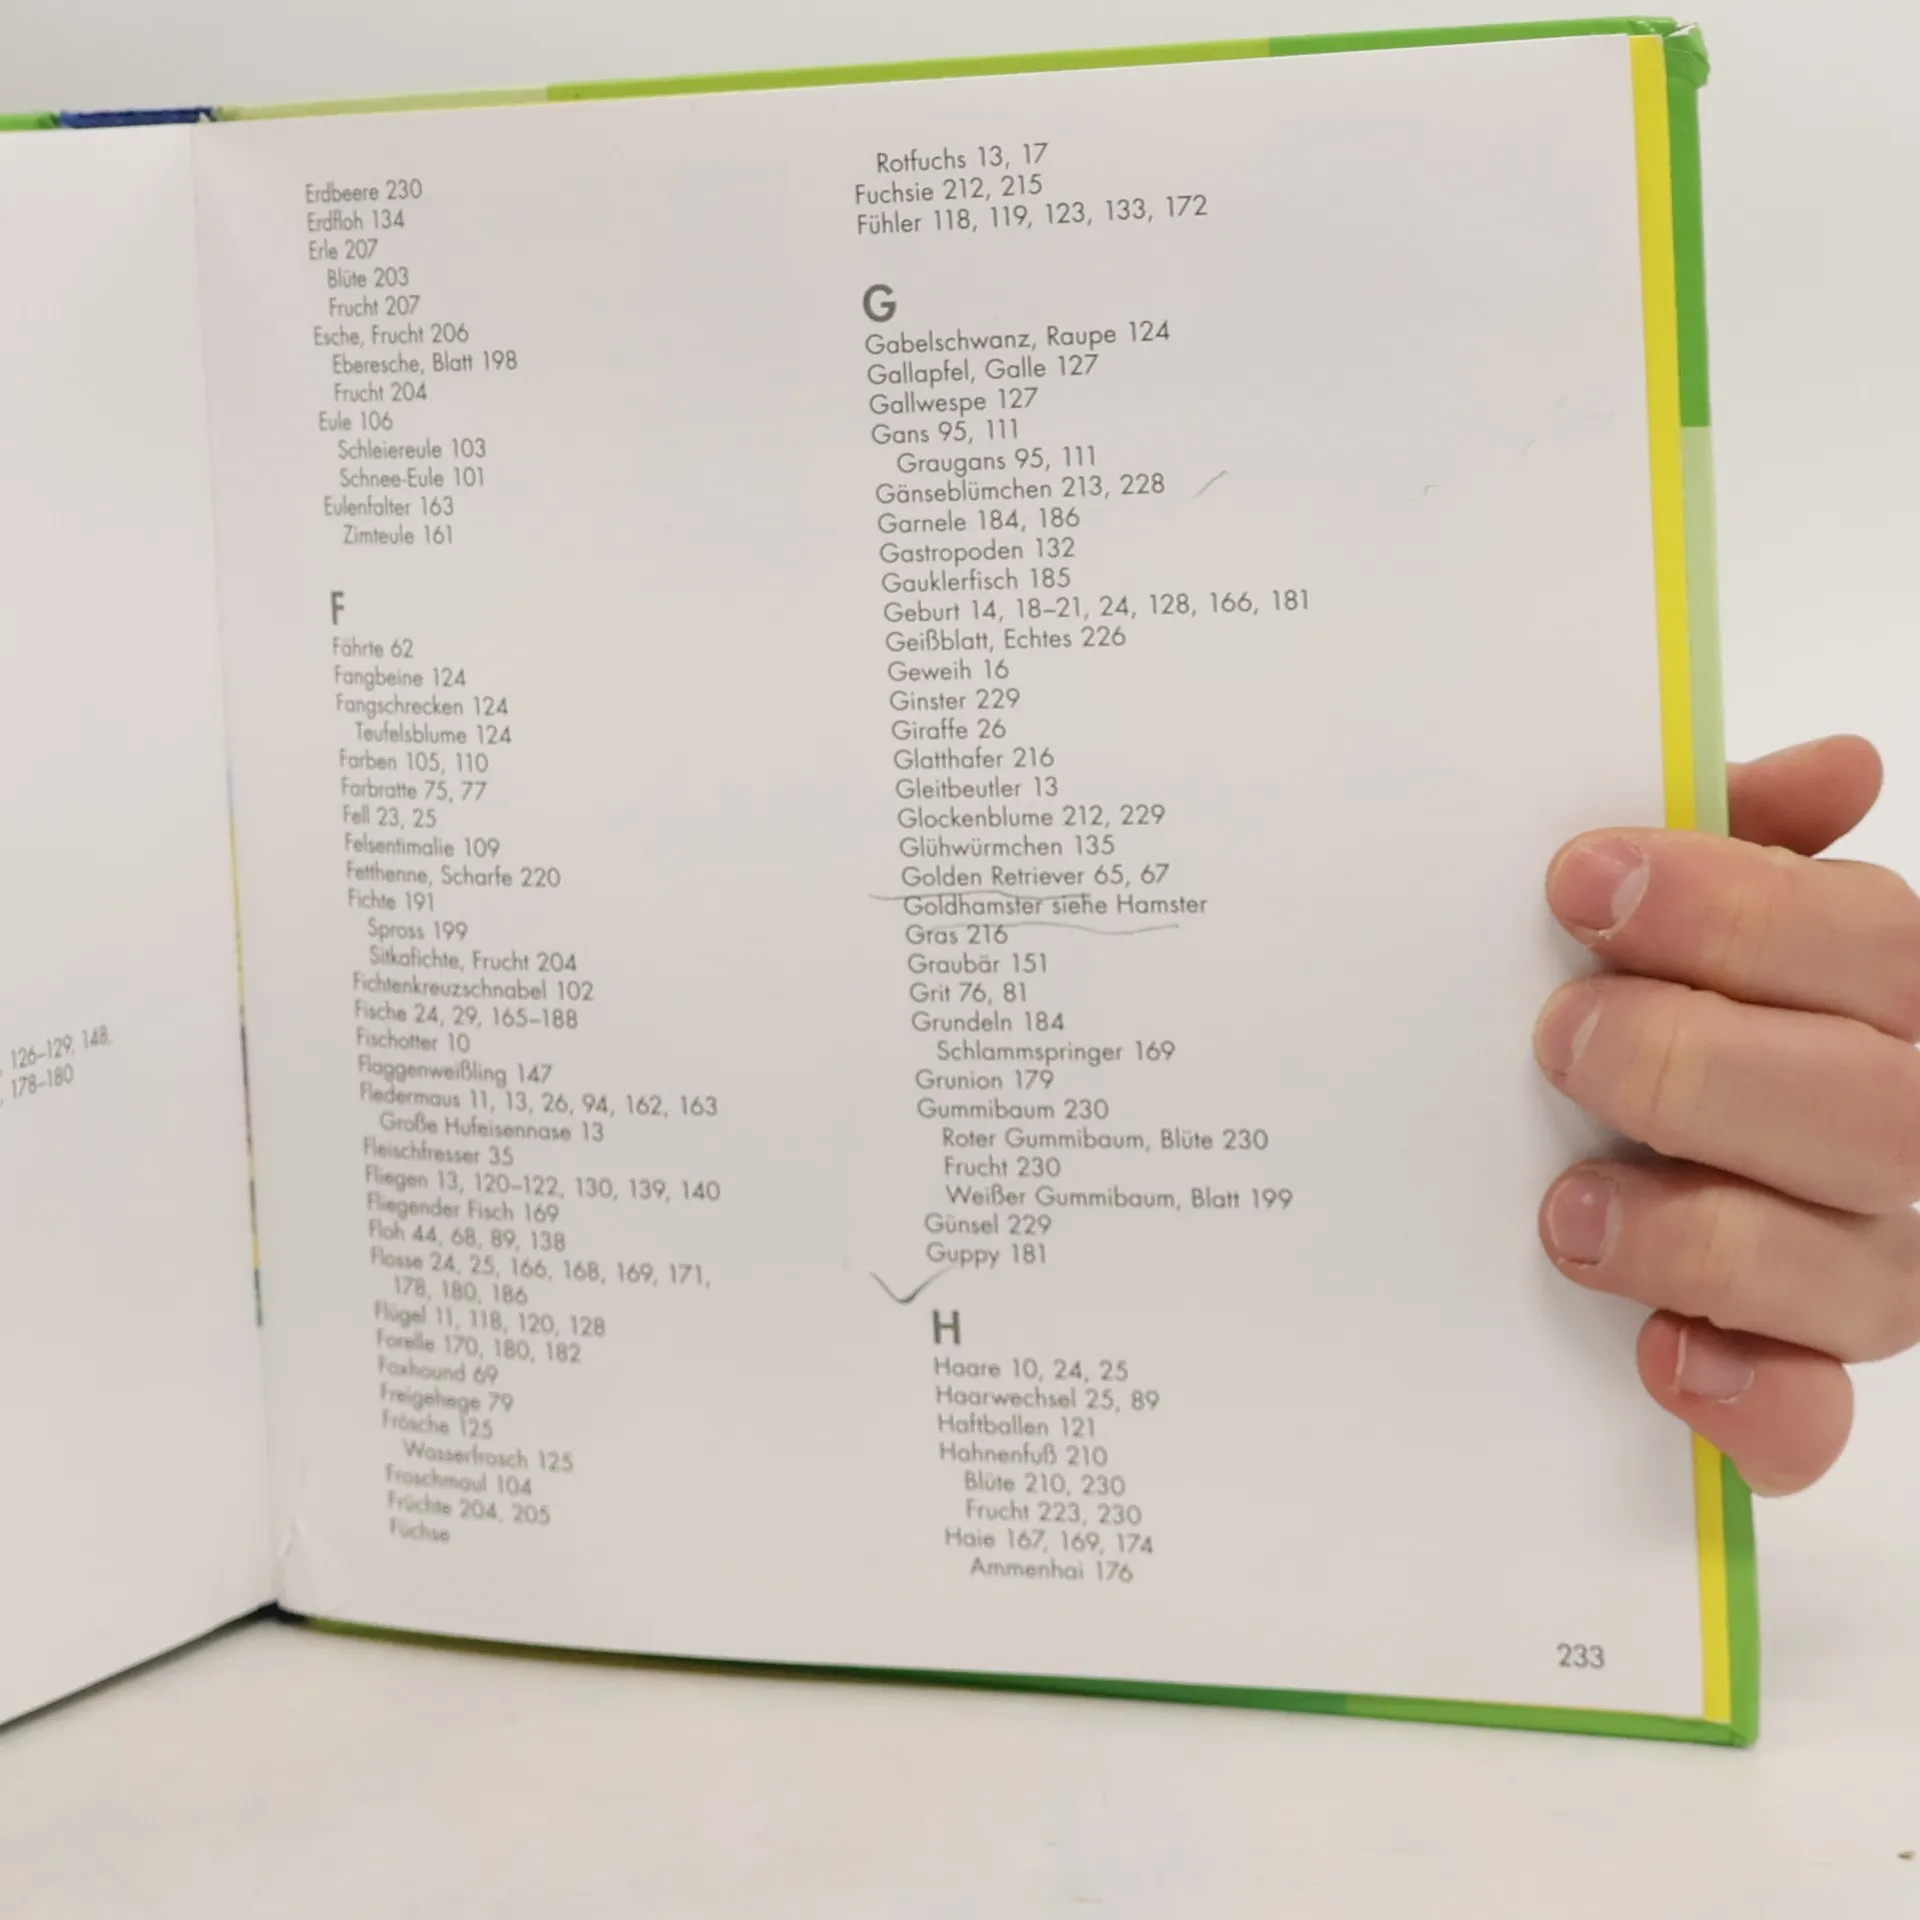 126–129, 148,
178–180
Erdbeere 230
Erdfloh 134
Erle 207
Blüte 203
Frucht 207
Esche, Frucht 206
Eberesche, Blatt 198
Frucht 204
Eule 106
Schleiereule 103
Schnee-Eule 101
Eulenfalter 163
Zimteule 161
F
Fährte 62
Fangbeine 124
Fangschrecken 124
Teufelsblume 124
Farben 105, 110
Farbratte 75, 77
Fell 23, 25
Felsentimalie 109
Fetthenne, Scharfe 220
Fichte 191
Spross 199
Sitkafichte, Frucht 204
Fichtenkreuzschnabel 102
Fische 24, 29, 165–188
Fischotter 10
Flaggenweißling 147
Fledermaus 11, 13, 26, 94, 162, 163
Große Hufeisennase 13
Fleischfresser 35
Fliegen 13, 120–122, 130, 139, 140
Fliegender Fisch 169
Floh 44, 68, 89, 138
Flosse 24, 25, 166, 168, 169, 171,
178, 180, 186
Flügel 11, 118, 120, 128
Forelle 170, 180, 182
Foxhound 69
Freigehege 79
Frösche 125
Wasserfrosch 125
Froschmaul 104
Früchte 204, 205
Füchse
Rotfuchs 13, 17
Fuchsie 212, 215
Fühler 118, 119, 123, 133, 172
G
Gabelschwanz, Raupe 124
Gallapfel, Galle 127
Gallwespe 127
Gans 95, 111
Graugans 95, 111
Gänseblümchen 213, 228
Garnele 184, 186
Gastropoden 132
Gauklerfisch 185
Geburt 14, 18–21, 24, 128, 166, 181
Geißblatt, Echtes 226
Geweih 16
Ginster 229
Giraffe 26
Glatthafer 216
Gleitbeutler 13
Glockenblume 212, 229
Glühwürmchen 135
Golden Retriever 65, 67
Goldhamster siehe Hamster
Gras 216
Graubär 151
Grit 76, 81
Grundeln 184
Schlammspringer 169
Grunion 179
Gummibaum 230
Roter Gummibaum, Blüte 230
Frucht 230
Weißer Gummibaum, Blatt 199
Günsel 229
Guppy 181
H
Haare 10, 24, 25
Haarwechsel 25, 89
Haftballen 121
Hahnenfuß 210
Blüte 210, 230
Frucht 223, 230
Haie 167, 169, 174
Ammenhai 176
233